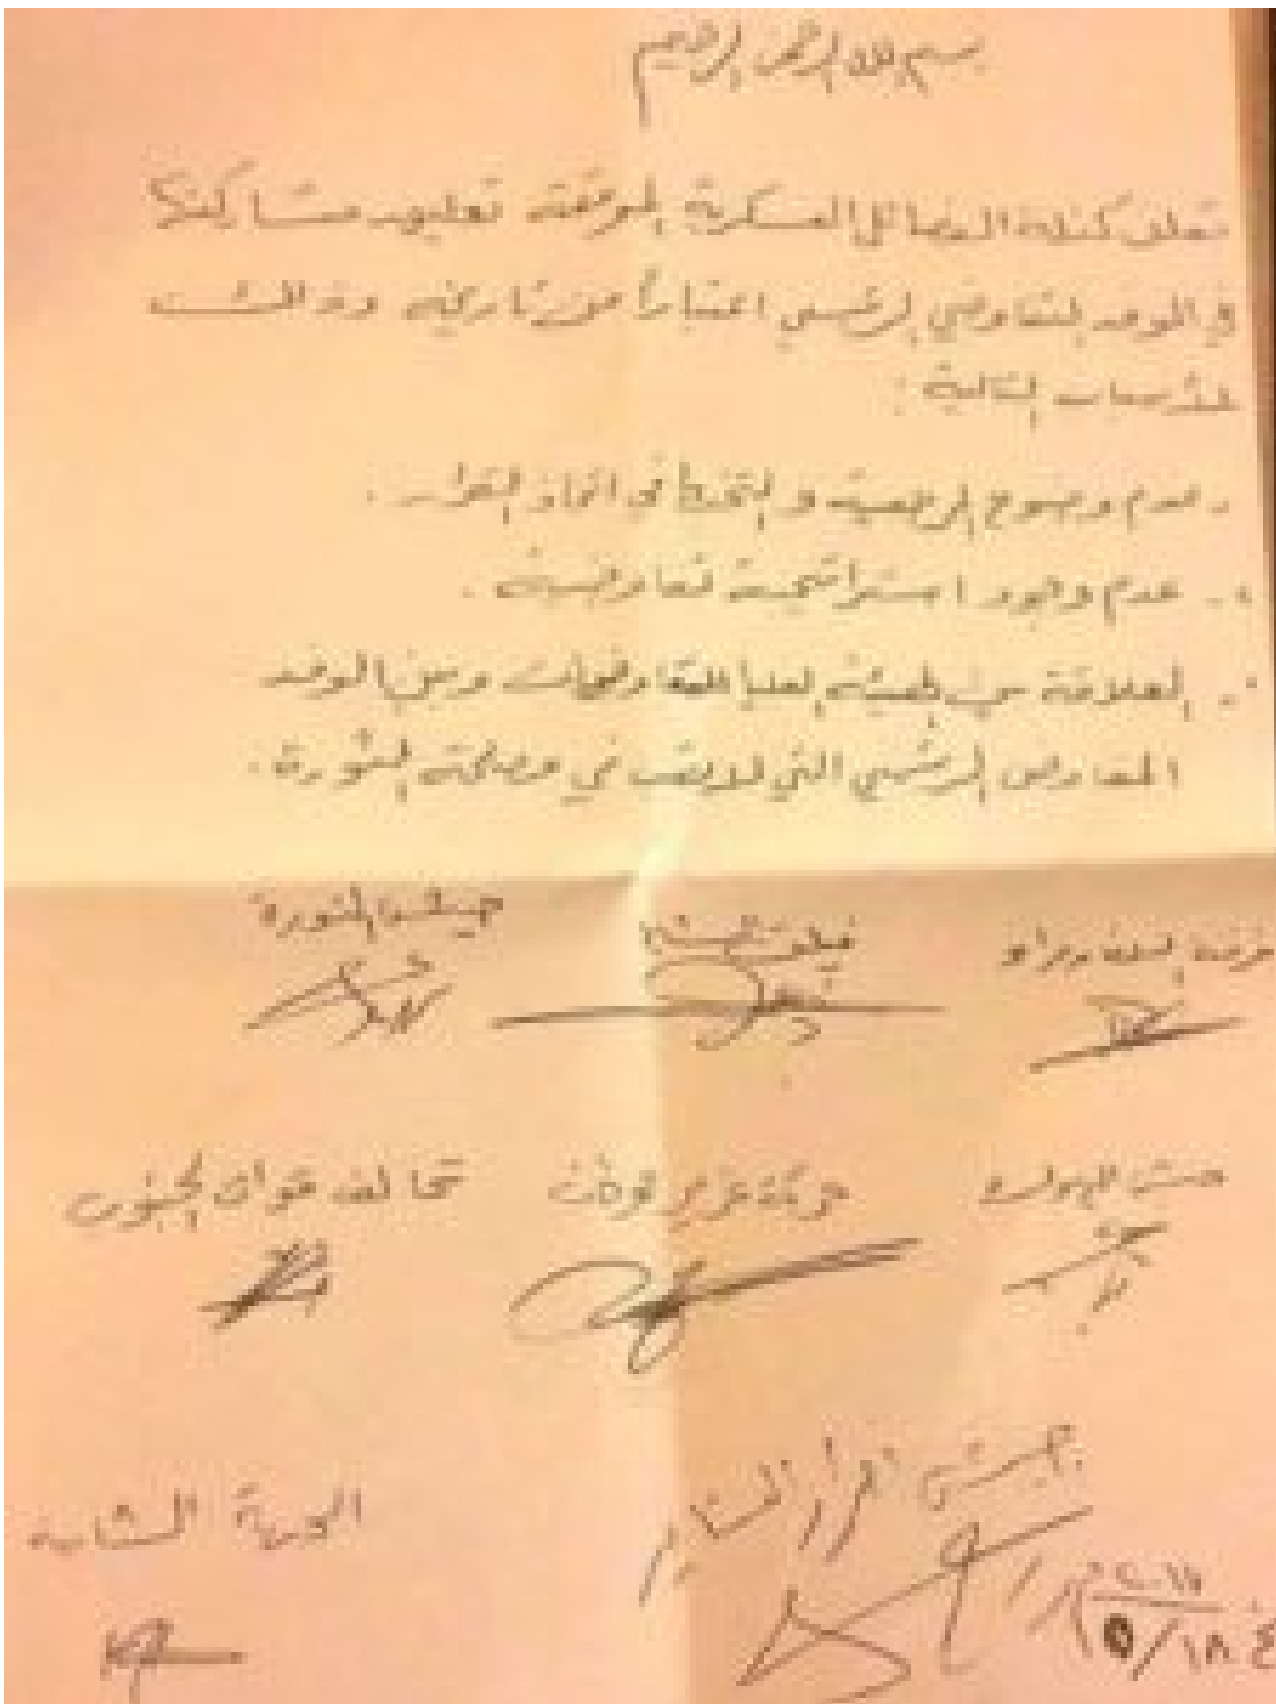 بسم الله الرحمن الرحيم
تعلن كتلة الفصائل العسكرية الموقعة تعليق مشاركتها
في الوفد التفاوضي الرئيسي اعتباراً من تاريخه وذلك
للأسباب التالية :
- عدم وضوح المرجعية و التخبط في اتخاذ القرار .
- عدم وجود استراتيجية تفاوضية .
- العلاقة بين الهيئة العليا للمفاوضات وبين الوفد
المفاوض الرئيسي التي لا تصب في مصلحة الثورة .
غرفة
فيلق الشام
جيش الثورة
جيش اليرموك
حركة تحرير
تحالف قوات الجنوب
جيش أحرار العشائر
الجبهة الشامية
٢٠١٧
١٨/٥